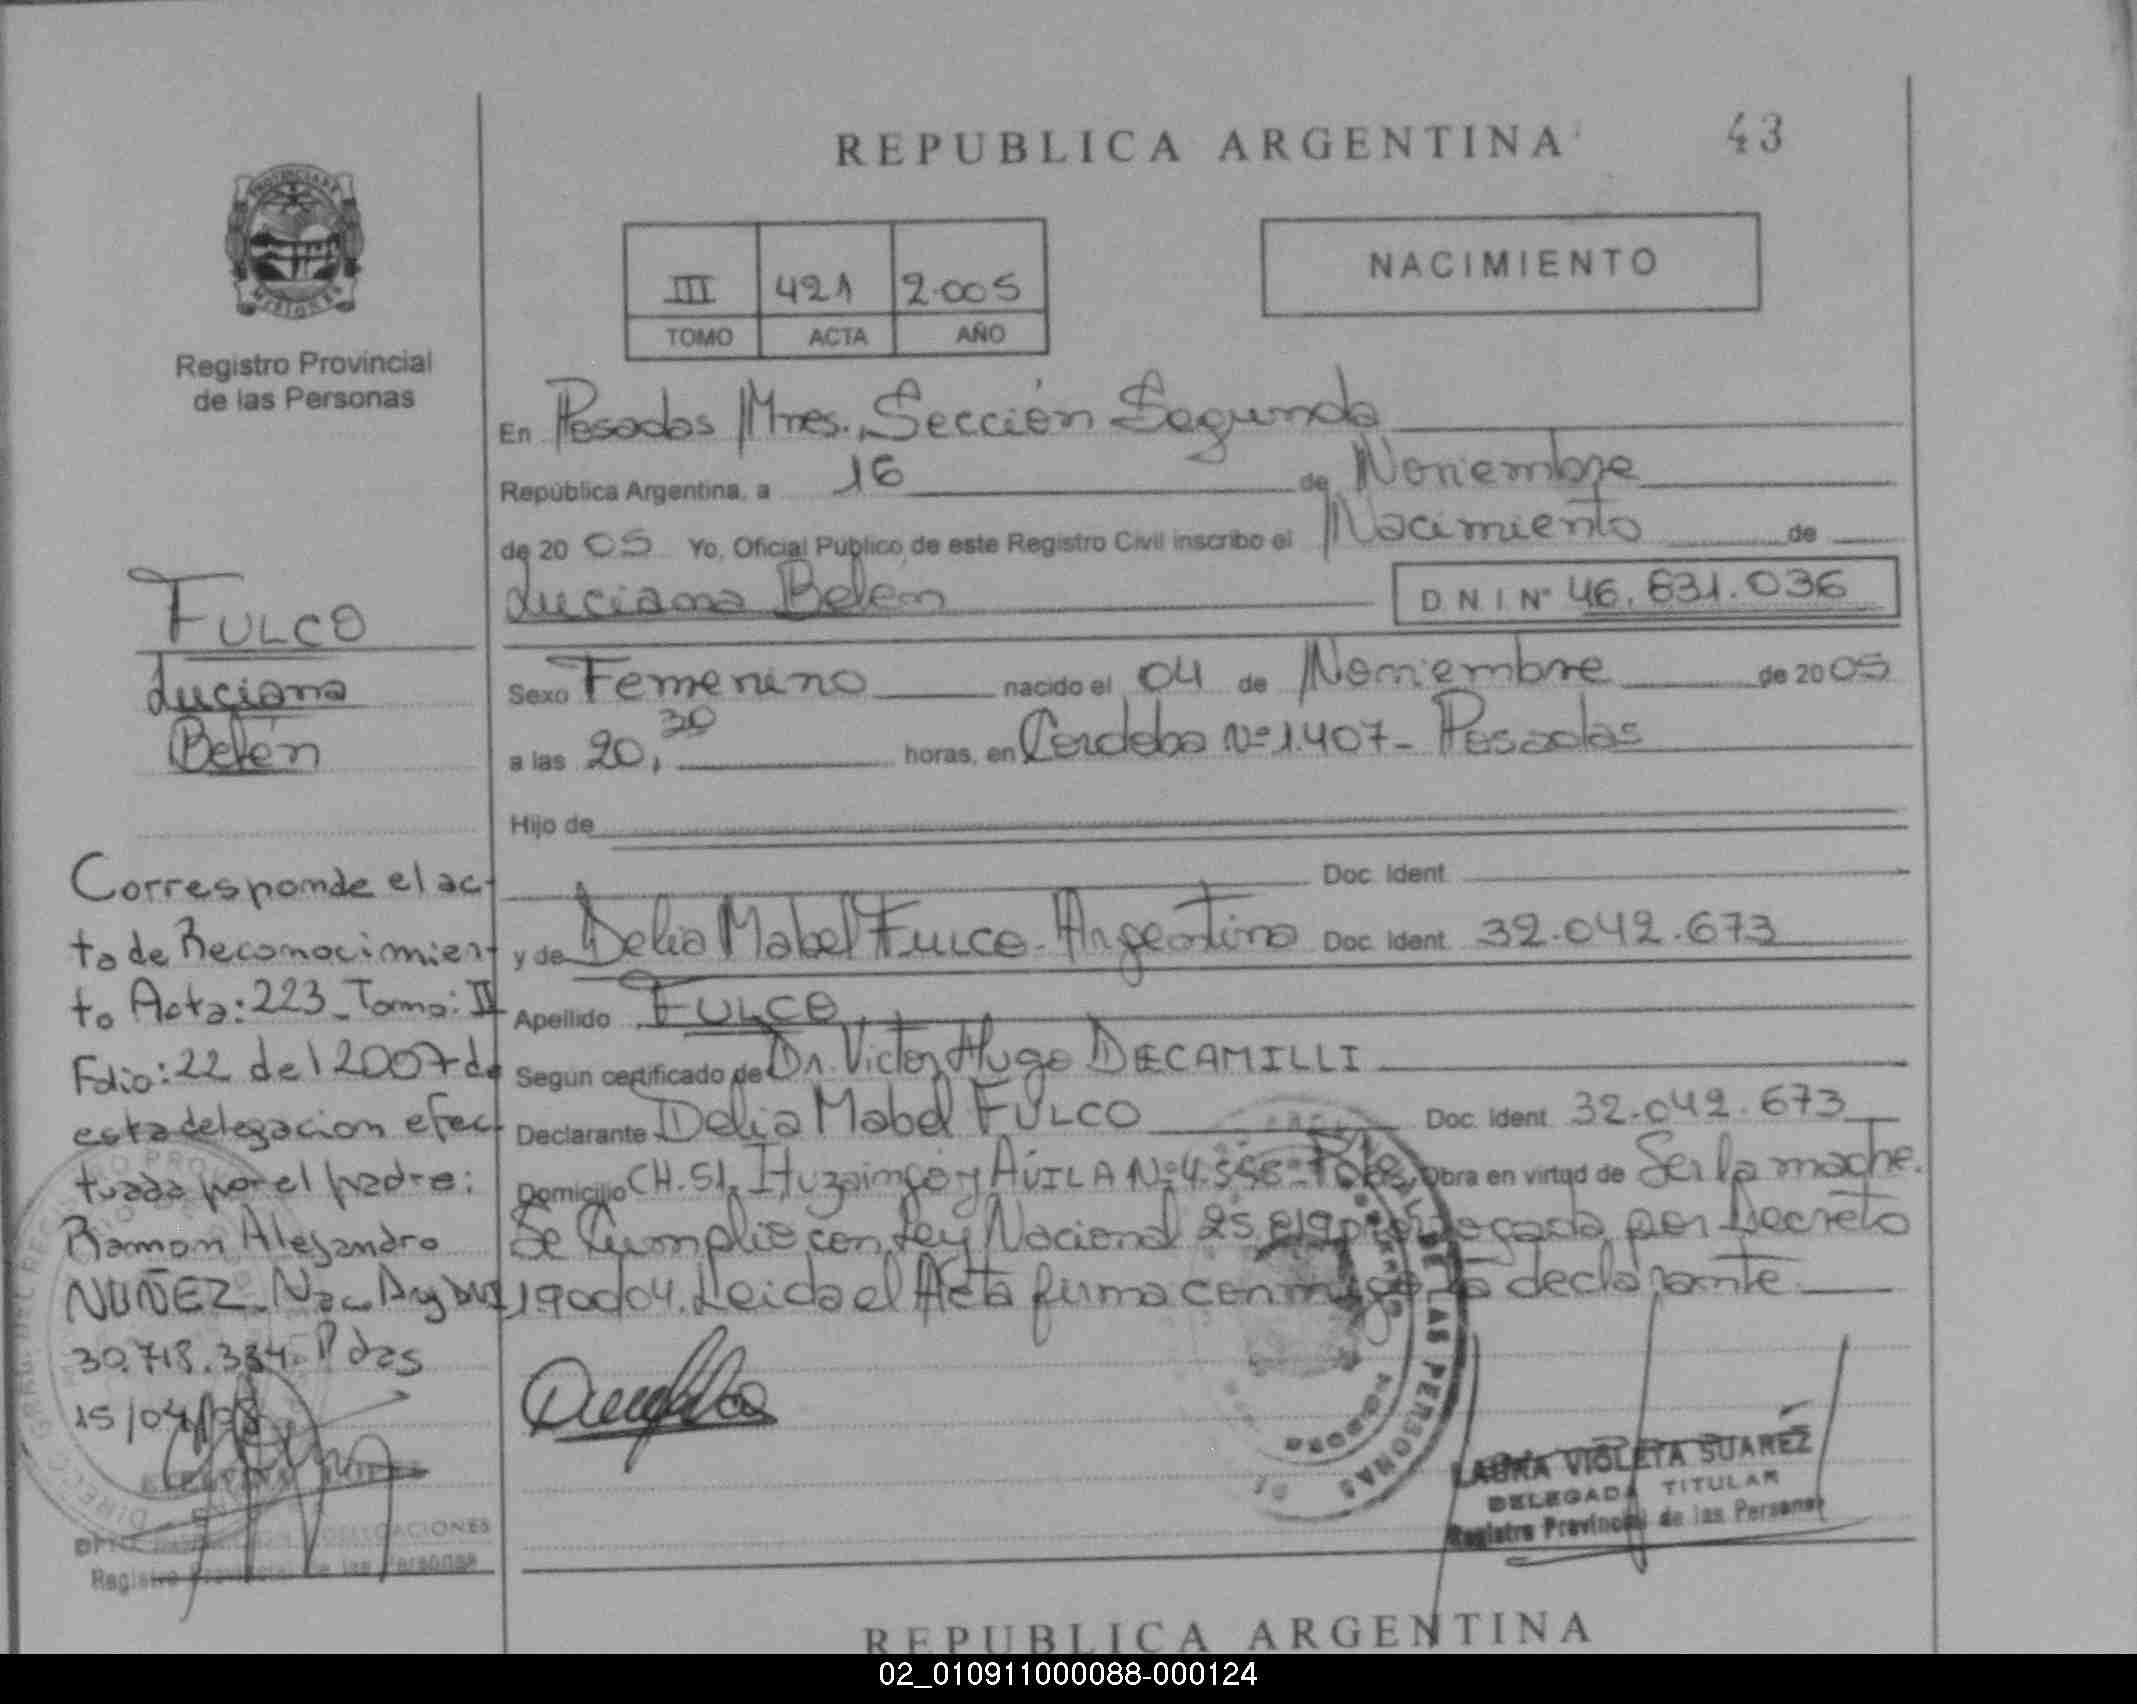 REPUBLICA ARGENTINA
43
III 421 2.005
TOMO ACTA AÑO
NACIMIENTO
Registro Provincial
de las Personas
En Posadas Mnes. Sección Segunda
República Argentina, a 16 de Noviembre
de 20 05 Yo, Oficial Público de este Registro Civil inscribo el Nacimiento de
Luciana Belen D N I Nº 46.631.036
Sexo Femenino nacido el 04 de Noviembre de 20 05
a las 20,30 horas, en Cordoba Nº 1.407 - Posadas
Hijo de
Doc. Ident.
y de Delia Mabel Fulco - Argentina Doc. Ident. 32.042.673
Apellido FULCO
Según certificado de Dr. Victor Hugo DECAMILLI
Declarante Delia Mabel FULCO Doc. Ident. 32.042.673
Domicilio CH. 51, Ituzaingo y AVILA Nº 4.556 - Obra en virtud de Ser la madre.
Se Cumplio con Ley Nacional 25. por Decreto
190004. Leida el Acta firma conmigo la declarante
FULCO
Luciana
Belén
Corresponde el ac-
ta de Reconocimien
to Acta: 223 - Tomo: II
Folio: 22 del 2007 de
esta delegacion efec
tuada por el padre:
Ramon Alejandro
NUÑEZ - Nac. Arg.
30.718.384 - Pdas
15/04/
DELEGACIONES
Registro Provincial de las Personas
DE LAS PERSONAS
LAURA VIOLETA SUAREZ
DELEGADA TITULAR
Registro Provincial de las Personas
REPUBLICA ARGENTINA
02_010911000088-000124